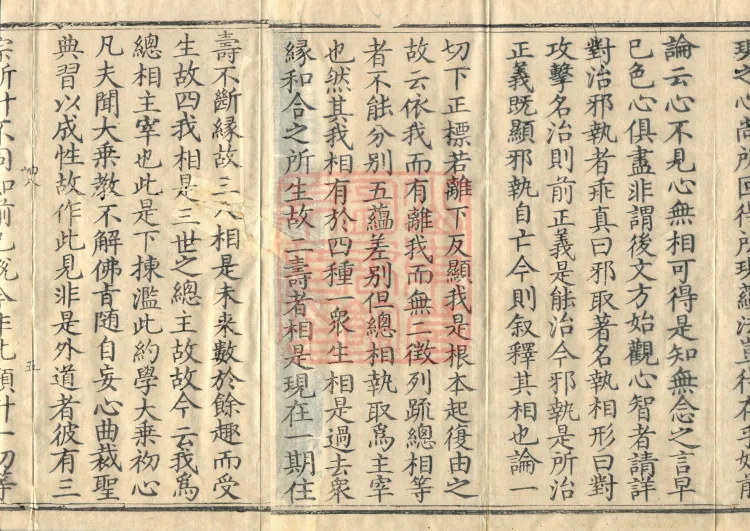 論云心不見心無相可得是知無念之言早
已色心俱盡非謂後文方始觀心智者請詳
對治邪執者乖真曰邪取著名執相形曰對
攻擊名治則前正義是能治今邪執是所治
正義既顯邪執自亡今則叙釋其相也論一
切下正標若離下反顯我是根本起復由之
故云依我而有離我而無二徵列疏總相等
者不能分別五蘊差別但總相執取爲主宰
也然其我相有於四種一衆生相是過去衆
緣和合之所生故二壽者相是現在一期住
壽不斷緣故三人相是未来數於餘趣而受
生故四我相是三世之總主故故今云我爲
總相主宰也此是下揀濫此約學大乗初心
凡夫聞大乗教不解佛旨随自妄心曲裁聖
典習以成性故作此見非是外道者彼有三
五